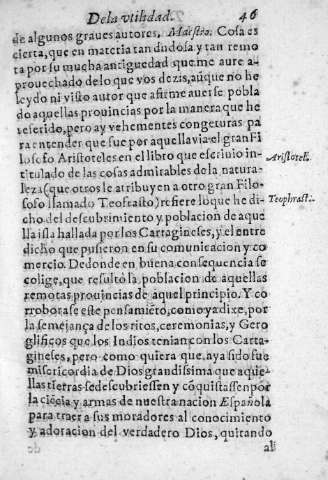 De la vtilidad. 46
de algunos graues autores, Maestro. Cosa es
cierta, que en materia tan dudosa y tan remo
ta por su mucha antiguedad que me aure a-
prouechado de lo que vos dezis, aũque no he
leydo ni visto autor que afirme auerse pobla
do aquellas prouincias por la manera que he
referido, pero ay vehementes congeturas pa
ra entender que fue por aquella via el gran Fi
losofo Aristoteles en el libro que escriuio in-
Aristotel.
titulado de las cosas admirables de la natura-
leza (que otros le atribuyen a otro gran Filo-
sofo llamado Teofrasto) refiere lo que he di-
Teophrast.
cho del descubrimiento y poblacion de aque
lla isla hallada por los Cartagineses, y el entre
dicho que pusieron en su comunicacion y co
mercio. De donde en buena consequencia se
colige, que resultò la poblacion de aquellas
remotas prouincias de aquel principio. Y co
rroborase este pensamiẽto, como ya dixe, por
la semejança de los ritos, ceremonias, y Gero
glificos que los Indios tenian con los Carta-
gineses, pero como quiera que aya sido fue
misericordia de Dios grandissima que aque
llas tierras se descubriessen y cõquistassen por
la ciẽcia y armas de nuestra nacion Española
para traer a sus moradores al conocimiento
y adoracion del verdadero Dios, quitando
al